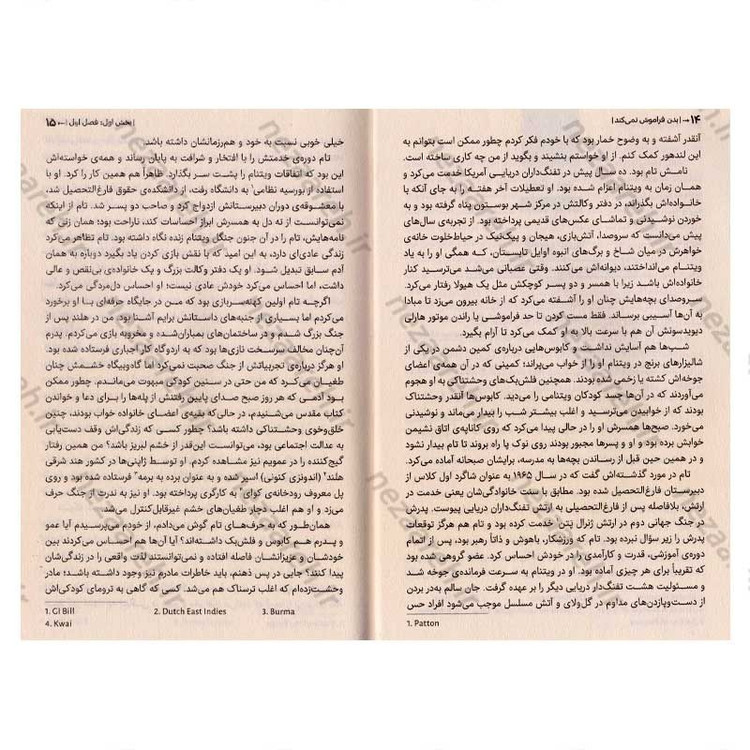 ۱۴ → | بدن فراموش نمی‌کند |
آنقدر آشفته و به وضوح خمار بود که با خودم فکر کردم چطور ممکن است بتوانم به
این لندهور کمک کنم. از او خواستم بنشیند و بگوید از من چه کاری ساخته است.
نامش تام بود. ده سال پیش در تفنگداران دریایی آمریکا خدمت می‌کرد و
همان زمان به ویتنام اعزام شده بود. او تعطیلات آخر هفته را به جای آنکه با
خانواده‌اش بگذراند، در دفتر وکالتش در مرکز شهر بوستون پناه گرفته بود و به
خوردن نوشیدنی و تماشای عکس‌های قدیمی پرداخته بود. از تجربه‌ی سال‌های
پیش می‌دانست که سروصدا، آتش‌بازی، هیجان و پیک‌نیک در حیاط‌خلوت خانه‌ی
خواهرش در میان شاخ و برگ‌های انبوه اوایل تابستان، که همگی او را به یاد
ویتنام می‌انداختند، دیوانه‌اش می‌کنند. وقتی عصبانی می‌شد می‌ترسید کنار
خانواده‌اش باشد زیرا با همسر و دو پسر کوچکش مثل یک هیولا رفتار می‌کرد.
سروصدای بچه‌هایش چنان او را آشفته می‌کرد که از خانه بیرون می‌زد تا مبادا
به آن‌ها آسیبی برساند. فقط مست کردن تا حد فراموشی یا راندن موتور هارلی
دیویدسونش آن هم با سرعت بالا به او کمک می‌کرد تا آرام بگیرد.
شب‌ها هم آسایش نداشت و کابوس‌هایی درباره‌ی کمین دشمن در یکی از
شالیزارهای برنج در ویتنام او را از خواب می‌پراند؛ کمینی که در آن همه‌ی اعضای
جوخه‌اش کشته یا زخمی شده بودند. همچنین فلش‌بک‌های وحشتناکی به او هجوم
می‌آوردند که در آن‌ها جسد کودکان ویتنامی را می‌دید. کابوس‌ها آنقدر وحشتناک
بودند که از خوابیدن می‌ترسید و اغلب بیشتر شب را بیدار می‌ماند و نوشیدنی
می‌خورد. صبح‌ها همسرش او را در حالی پیدا می‌کرد که روی کاناپه‌ی اتاق نشیمن
خوابش برده بود و او و پسرها مجبور بودند روی نوک پا راه بروند تا تام بیدار نشود
و در همین حین قبل از رساندن بچه‌ها به مدرسه، برایشان صبحانه آماده می‌کرد.
تام در مورد گذشته‌اش گفت که در سال ۱۹۶۵ به عنوان شاگرد اول کلاس از
دبیرستان فارغ‌التحصیل شده بود. مطابق با سنت خانوادگی‌شان یعنی خدمت در
ارتش، بلافاصله پس از فارغ‌التحصیلی به ارتش تفنگ‌داران دریایی پیوست. پدرش
در جنگ جهانی دوم در ارتش ژنرال پتن¹ خدمت کرده بود و تام هم هرگز توقعات
پدرش را زیر سؤال نبرده بود. تام که ورزشکار، باهوش و ذاتاً رهبر بود، پس از اتمام
دوره‌ی آموزشی، قدرت و کارآمدی را در خودش احساس کرد. عضو گروهی شده بود
که تقریباً برای هر چیزی آماده بود. او در ویتنام به سرعت فرمانده‌ی جوخه شد
و مسئولیت هشت تفنگ‌دار دریایی دیگر را بر عهده گرفت. جان سالم به‌در بردن
از دست‌وپازدن‌های مداوم در گل‌ولای و آتش مسلسل موجب می‌شود افراد حس
1. Patton
| بخش اول: فصل اول | ← ۱۵
خیلی خوبی نسبت به خود و هم‌رزمانشان داشته باشد.
تام دوره‌ی خدمتش را با افتخار و شرافت به پایان رساند و همه‌ی خواسته‌اش
این بود که اتفاقات ویتنام را پشت سر بگذارد. ظاهراً هم همین کار را کرد. او با
استفاده از بورسیه نظامی¹ به دانشگاه رفت، از دانشکده‌ی حقوق فارغ‌التحصیل شد،
با معشوقه‌ی دوران دبیرستانش ازدواج کرد و صاحب دو پسر شد. تام از اینکه
نمی‌توانست از ته دل به همسرش ابراز احساسات کند، ناراحت بود؛ همان زنی که
نامه‌هایش، تام را در آن جنون جنگل ویتنام زنده نگاه داشته بود. تام تظاهر می‌کرد
زندگی عادی‌ای دارد، به این امید که با نقش بازی کردن یاد بگیرد دوباره به همان
آدم سابق تبدیل شود. او یک دفتر وکالت بزرگ و یک خانواده‌ی بی‌نقص و عالی
داشت، اما احساس می‌کرد خودش عادی نیست؛ او احساس دل‌مردگی می‌کرد.
اگرچه تام اولین کهنه‌سربازی بود که من در جایگاه حرفه‌ای با او برخورد
می‌کردم اما بسیاری از جنبه‌های داستانش برایم آشنا بود. من در هلند پس از
جنگ بزرگ شدم و در ساختمان‌های بمباران‌شده و مخروبه بازی می‌کردم. پدرم
آن‌چنان مخالف سرسخت نازی‌ها بود که به اردوگاه کار اجباری فرستاده شده بود.
او هرگز درباره‌ی تجربیاتش از جنگ صحبت نمی‌کرد اما گاه‌وبیگاه خشمش چنان
طغیان می‌کرد که من حتی در سنین کودکی مبهوت می‌ماندم. چطور ممکن
بود آدمی که هر روز صبح صدای پایین رفتنش از پله‌ها را برای دعا و خواندن
کتاب مقدس می‌شنیدم، در حالی‌که بقیه‌ی اعضای خانواده خواب بودند، چنین
خلق‌وخوی وحشتناکی داشته باشد؟ چطور کسی که زندگی‌اش وقف دست‌یابی
به عدالت اجتماعی بود، می‌توانست این‌قدر از خشم لبریز باشد؟ من همین رفتار
گیج‌کننده را در عمویم نیز مشاهده کردم. او توسط ژاپنی‌ها در کشور هند شرقی
هلند² (اندونزی کنونی) اسیر شده و به عنوان برده به برمه³ فرستاده شده بود و روی
پل معروف رودخانه‌ی کوای⁴ به کارگری پرداخته بود. او نیز به ندرت از جنگ حرف
می‌زد و او هم اغلب دچار طغیان‌های خشم غیرقابل‌کنترل می‌شد.
همان‌طور که به حرف‌های تام گوش می‌دادم، از خودم می‌پرسیدم آیا عمو
و پدرم هم کابوس و فلش‌بک داشته‌اند؟ آیا آن‌ها هم احساس می‌کردند بین
خودشان و عزیزانشان فاصله افتاده و نمی‌توانستند لذت واقعی را در زندگی‌شان
پیدا کنند؟ جایی در پس ذهنم، باید خاطرات مادرم نیز وجود داشته باشد؛ مادر
وحشت‌زده‌ام که اغلب ترسناک هم می‌شد. کسی که گاهی به ترومای کودکی‌اش
1. GI Bill 2. Dutch East Indies 3. Burma
4. Kwai
nezareh.ir